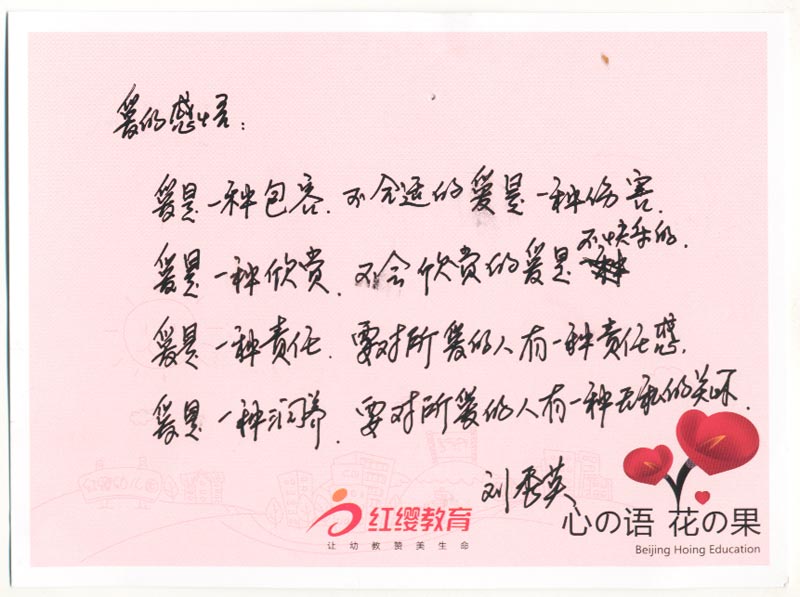 爱的感悟：
爱是一种包容.不合适的爱是一种伤害.
爱是一种欣赏.不会欣赏的爱是不快乐的.
爱是一种责任.要对所爱的人有一种责任感.
爱是一种润养.要对所爱的人有一种无私的关怀.
刘秀英
红缨教育
让幼教赞美生命
心の语 花の果
Beijing Hoing Education